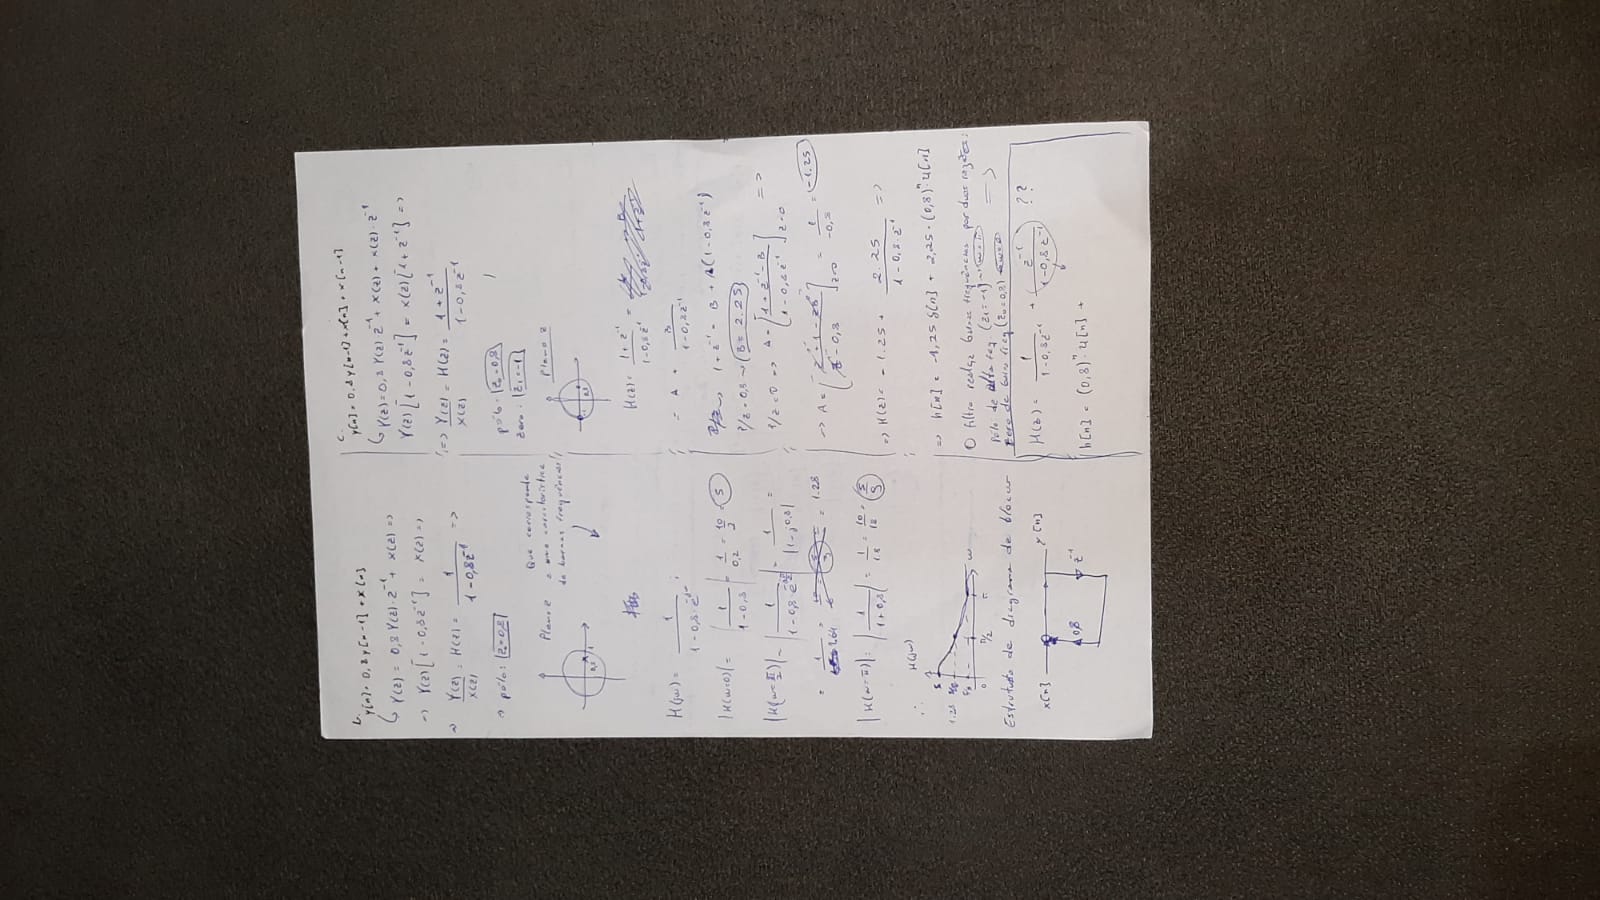 b.
y[n] = 0,8 y[n-1] + x[n]
↳ Y(z) = 0,8 Y(z) · z⁻¹ + X(z) =>
=> Y(z) [1 - 0,8z⁻¹] = X(z) =>
=> Y(z)/X(z) = H(z) = 1/(1 - 0,8z⁻¹) =>
=> polo: z = 0,8
Plano z
Que corresponde
a uma característica
de baixas frequências
0,8 1
H(jω) = 1/(1 - 0,8 · e^-jω) ;
|H(ω=0)| = |1/(1 - 0,8)| = 1/0,2 = 10/2 = 5
|H(ω=π/2)| = |1/(1 - 0,8 · e^-jπ/2)| = 1/|1 - j0,8| =
= 1/1.64 = = 1.28
|H(ω=π)| = |1/(1 + 0,8)| = 1/1.8 = 10/18 = 5/9
∴ H(jω)
5
1.28
5/9
0 π/2 π ω
Estrutura de diagrama de blocos
x[n] y[n]
0,8 z⁻¹
c.
y[n] = 0.8 y[n-1] + x[n] + x[n-1]
↳ Y(z) = 0,8 Y(z) z⁻¹ + X(z) + X(z) · z⁻¹
Y(z) [1 - 0,8z⁻¹] = X(z) [1 + z⁻¹] =>
=> Y(z)/X(z) = H(z) = (1 + z⁻¹)/(1 - 0,8z⁻¹)
polo: z₀ = 0,8
zero: z₁ = -1
Plano z
H(z) = (1 + z⁻¹)/(1 - 0,8z⁻¹) =
= A + B/(1 - 0,8z⁻¹)
1 + z⁻¹ = B + A(1 - 0,8z⁻¹)
P/ z = 0,8 -> B = 2.25
P/ z = 0 => A = [(1 + z⁻¹ - B)/(1 - 0,8z⁻¹)] z=0 =>
-> A = [ / z - 0,8] z=0 = 1/-0,8 = -1.25
=> H(z) = -1.25 + 2.25/(1 - 0,8 · z⁻¹) =>
=> h[n] = -1,25 δ[n] + 2,25 · (0,8)ⁿ · u[n]
O filtro realça baixas frequências por duas razões:
(z₁ = -1)
(z₀ = 0,8)
H(z) = 1/(1 - 0,8z⁻¹) + z⁻¹/(1 - 0,8z⁻¹) ??
h[n] = (0,8)ⁿ · u[n] +